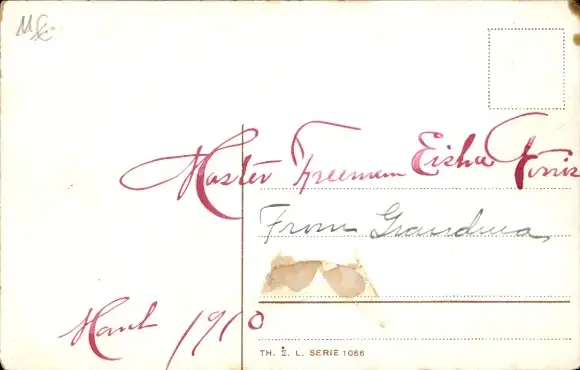 Master Freeman Eisha Forris
From Grandma,
March 1910
TH. E. L. SERIE 1066